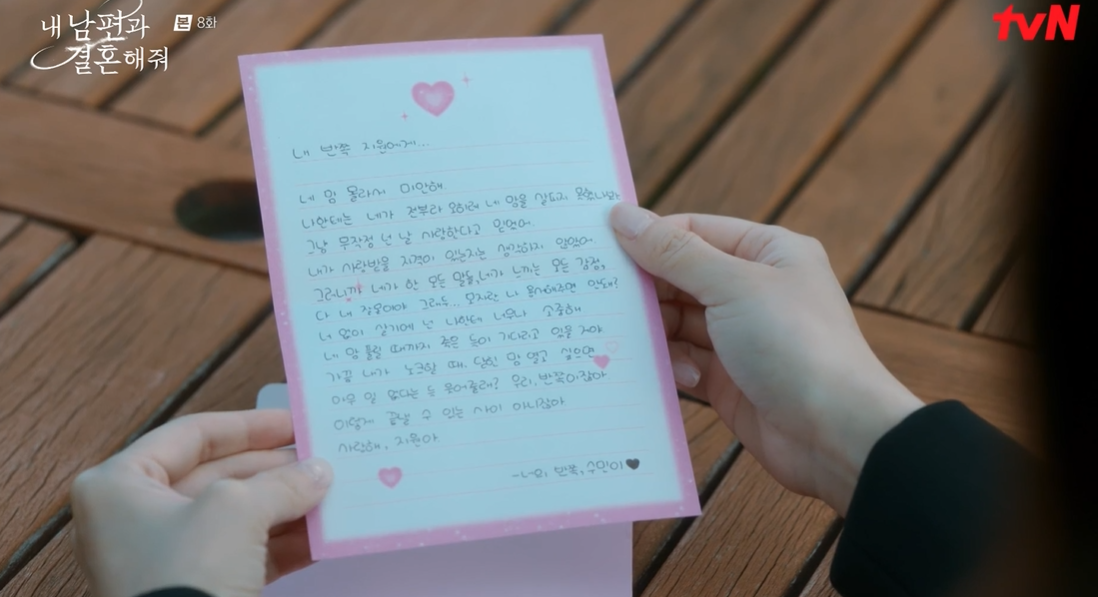 내 남편과
결혼해줘
본 8화
tvN
내 반쪽 지원에게...
네 맘 몰라서 미안해
나한테는 네가 전부라 오히려 네 맘을 살피지 못했나봐
그냥 무작정 넌 날 사랑한다고 믿었어.
내가 사랑받을 자격이 있는지는 생각하지 않았어.
그러니까 네가 한 모든 말들, 네가 느끼는 모든 감정,
다 내 잘못이야 그래두... 모자란 나 용서해주면 안돼?
너 없이 살기에 넌 나한테 너무나 소중해
네 맘 풀릴 때까지 죽은 듯이 기다리고 있을 거야
가끔 내가 노크할 때, 닫힌 맘 열고 싶으면
아무 일 없다는 듯 웃어줄래? 우리, 반쪽이잖아
이렇게 끝낼 수 있는 사이 아니잖아
사랑해, 지원아
-너의 반쪽, 수민이